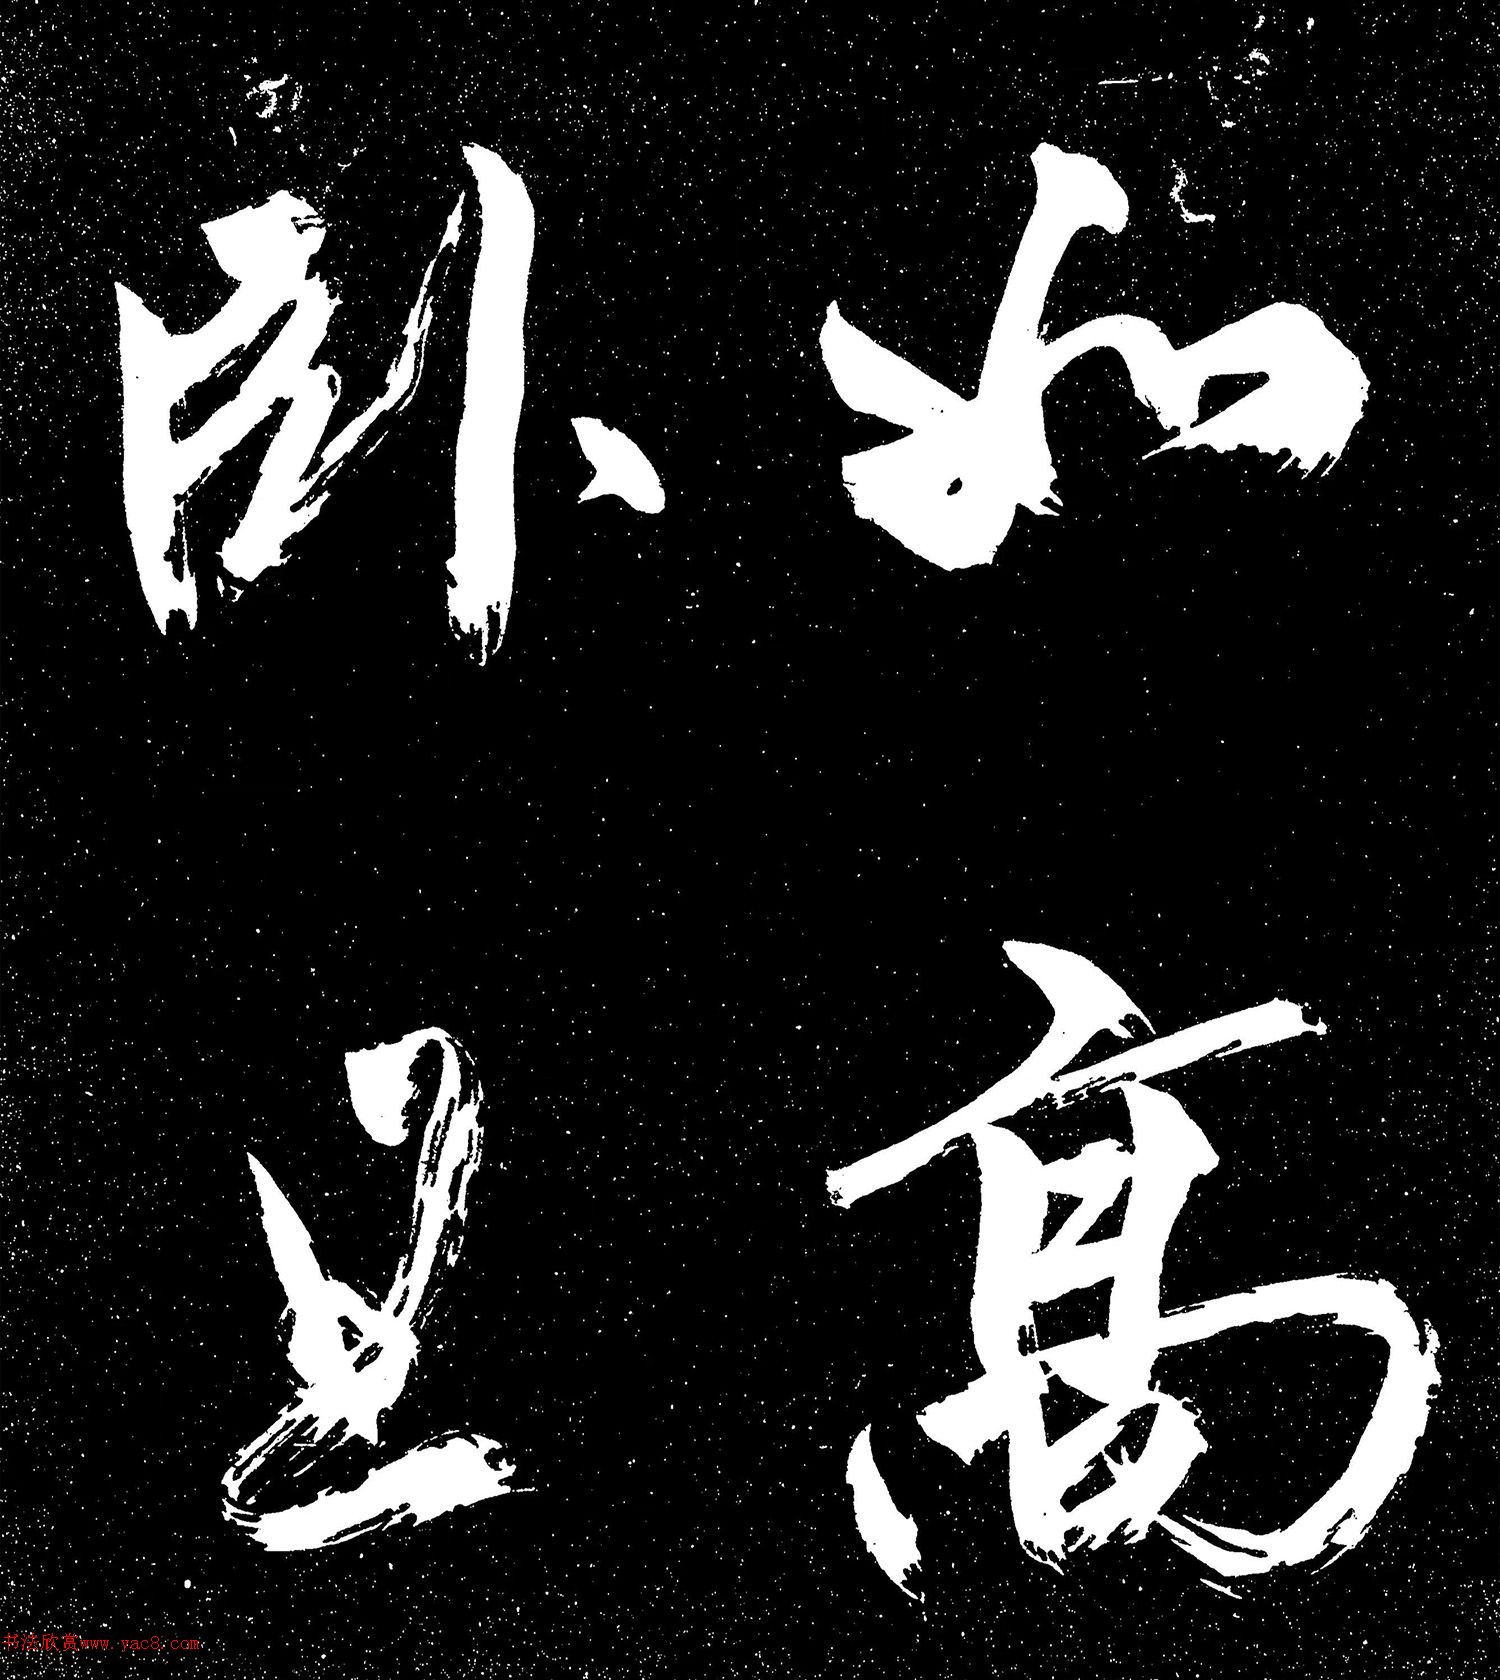 如高
卧且
书法欣赏www.yac8.com